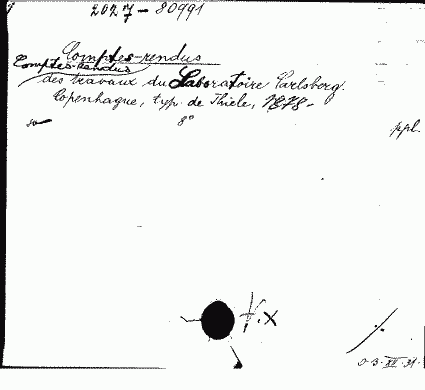 2027-80991
Comptes-rendus
Comptes-rendus
des travaux du Laboratoire Carlsberg.
Copenhague, typ. de Thiele, 1878-
8° ppl.